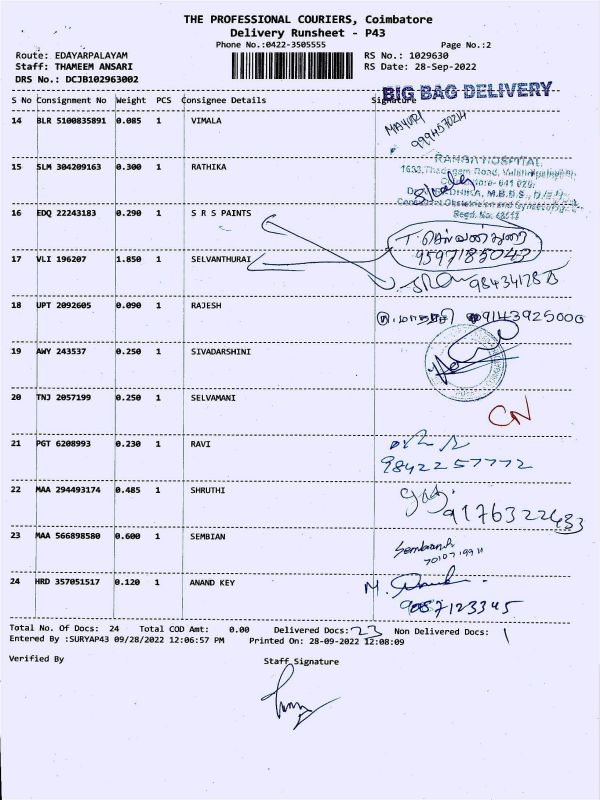 THE PROFESSIONAL COURIERS, Coimbatore
Delivery Runsheet - P43
Phone No.:0422-3505555 Page No.:2
Route: EDAYARPALAYAM RS No.: 1029630
Staff: THAMEEM ANSARI RS Date: 28-Sep-2022
DRS No.: DCJB102963002
BIG BAG DELIVERY
S No Consignment No Weight PCS Consignee Details Signature
14 BLR 5100835891 0.085 1 VIMALA
MAYURI
RAMBA HOSPITAL
15 SLM 304209163 0.300 1 RATHIKA
16 EDQ 22243183 0.290 1 S R S PAINTS
T. செல்வன்துரை
9597185043
17 VLI 196207 1.850 1 SELVANTHURAI
18 UPT 2092605 0.090 1 RAJESH
19 AWY 243537 0.250 1 SIVADARSHINI
20 TNJ 2057199 0.250 1 SELVAMANI
CN
21 PGT 6208993 0.230 1 RAVI
9842257772
22 MAA 294493174 0.485 1 SHRUTHI
23 MAA 566898580 0.600 1 SEMBIAN
24 HRD 357051517 0.120 1 ANAND KEY
Total No. Of Docs: 24 Total COD Amt: 0.00 Delivered Docs: 23 Non Delivered Docs: 1
Entered By :SURYAP43 09/28/2022 12:06:57 PM Printed On: 28-09-2022 12:08:09
Verified By Staff Signature